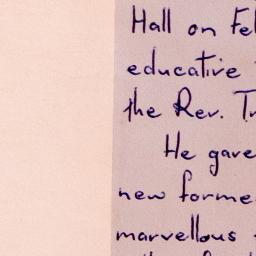 Hall on Fe
educative
the Rev. Tr
He gave
new forme
marvellous